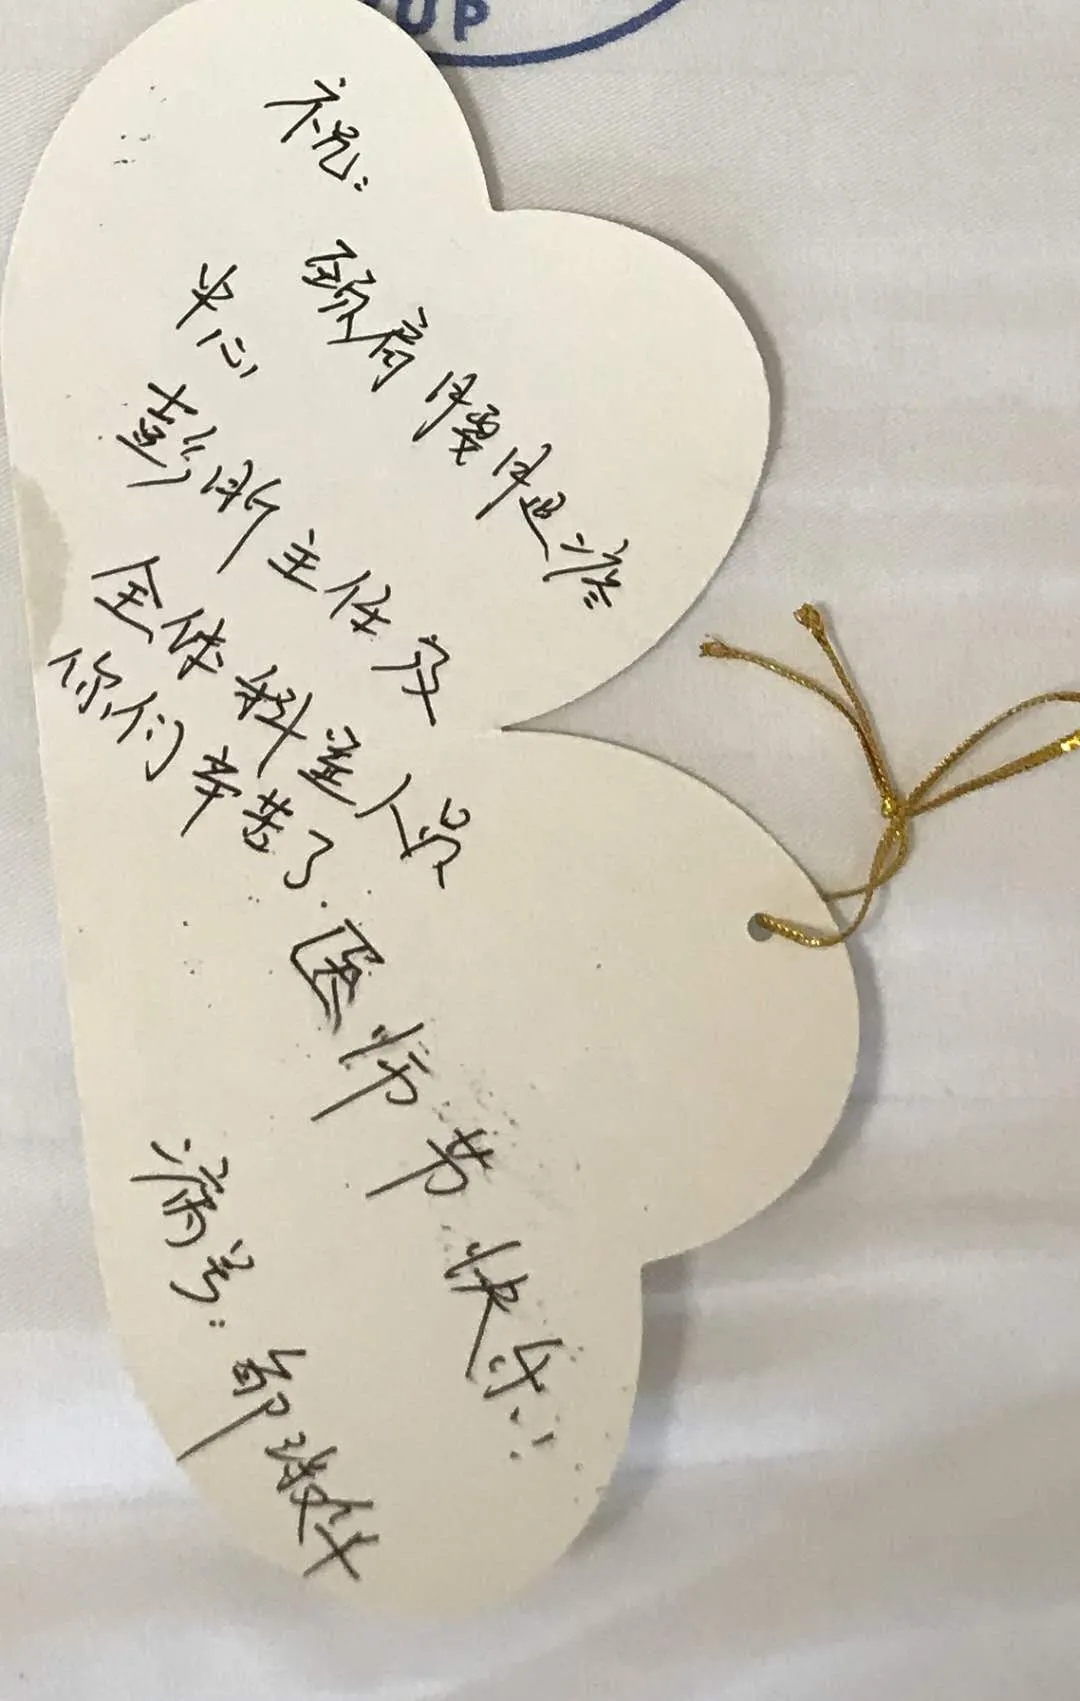 UP
祝:
颈肩腰腿疼
中心
彭 主任及
全体科室人员
你们辛苦了.
医师节快乐!!
病号: